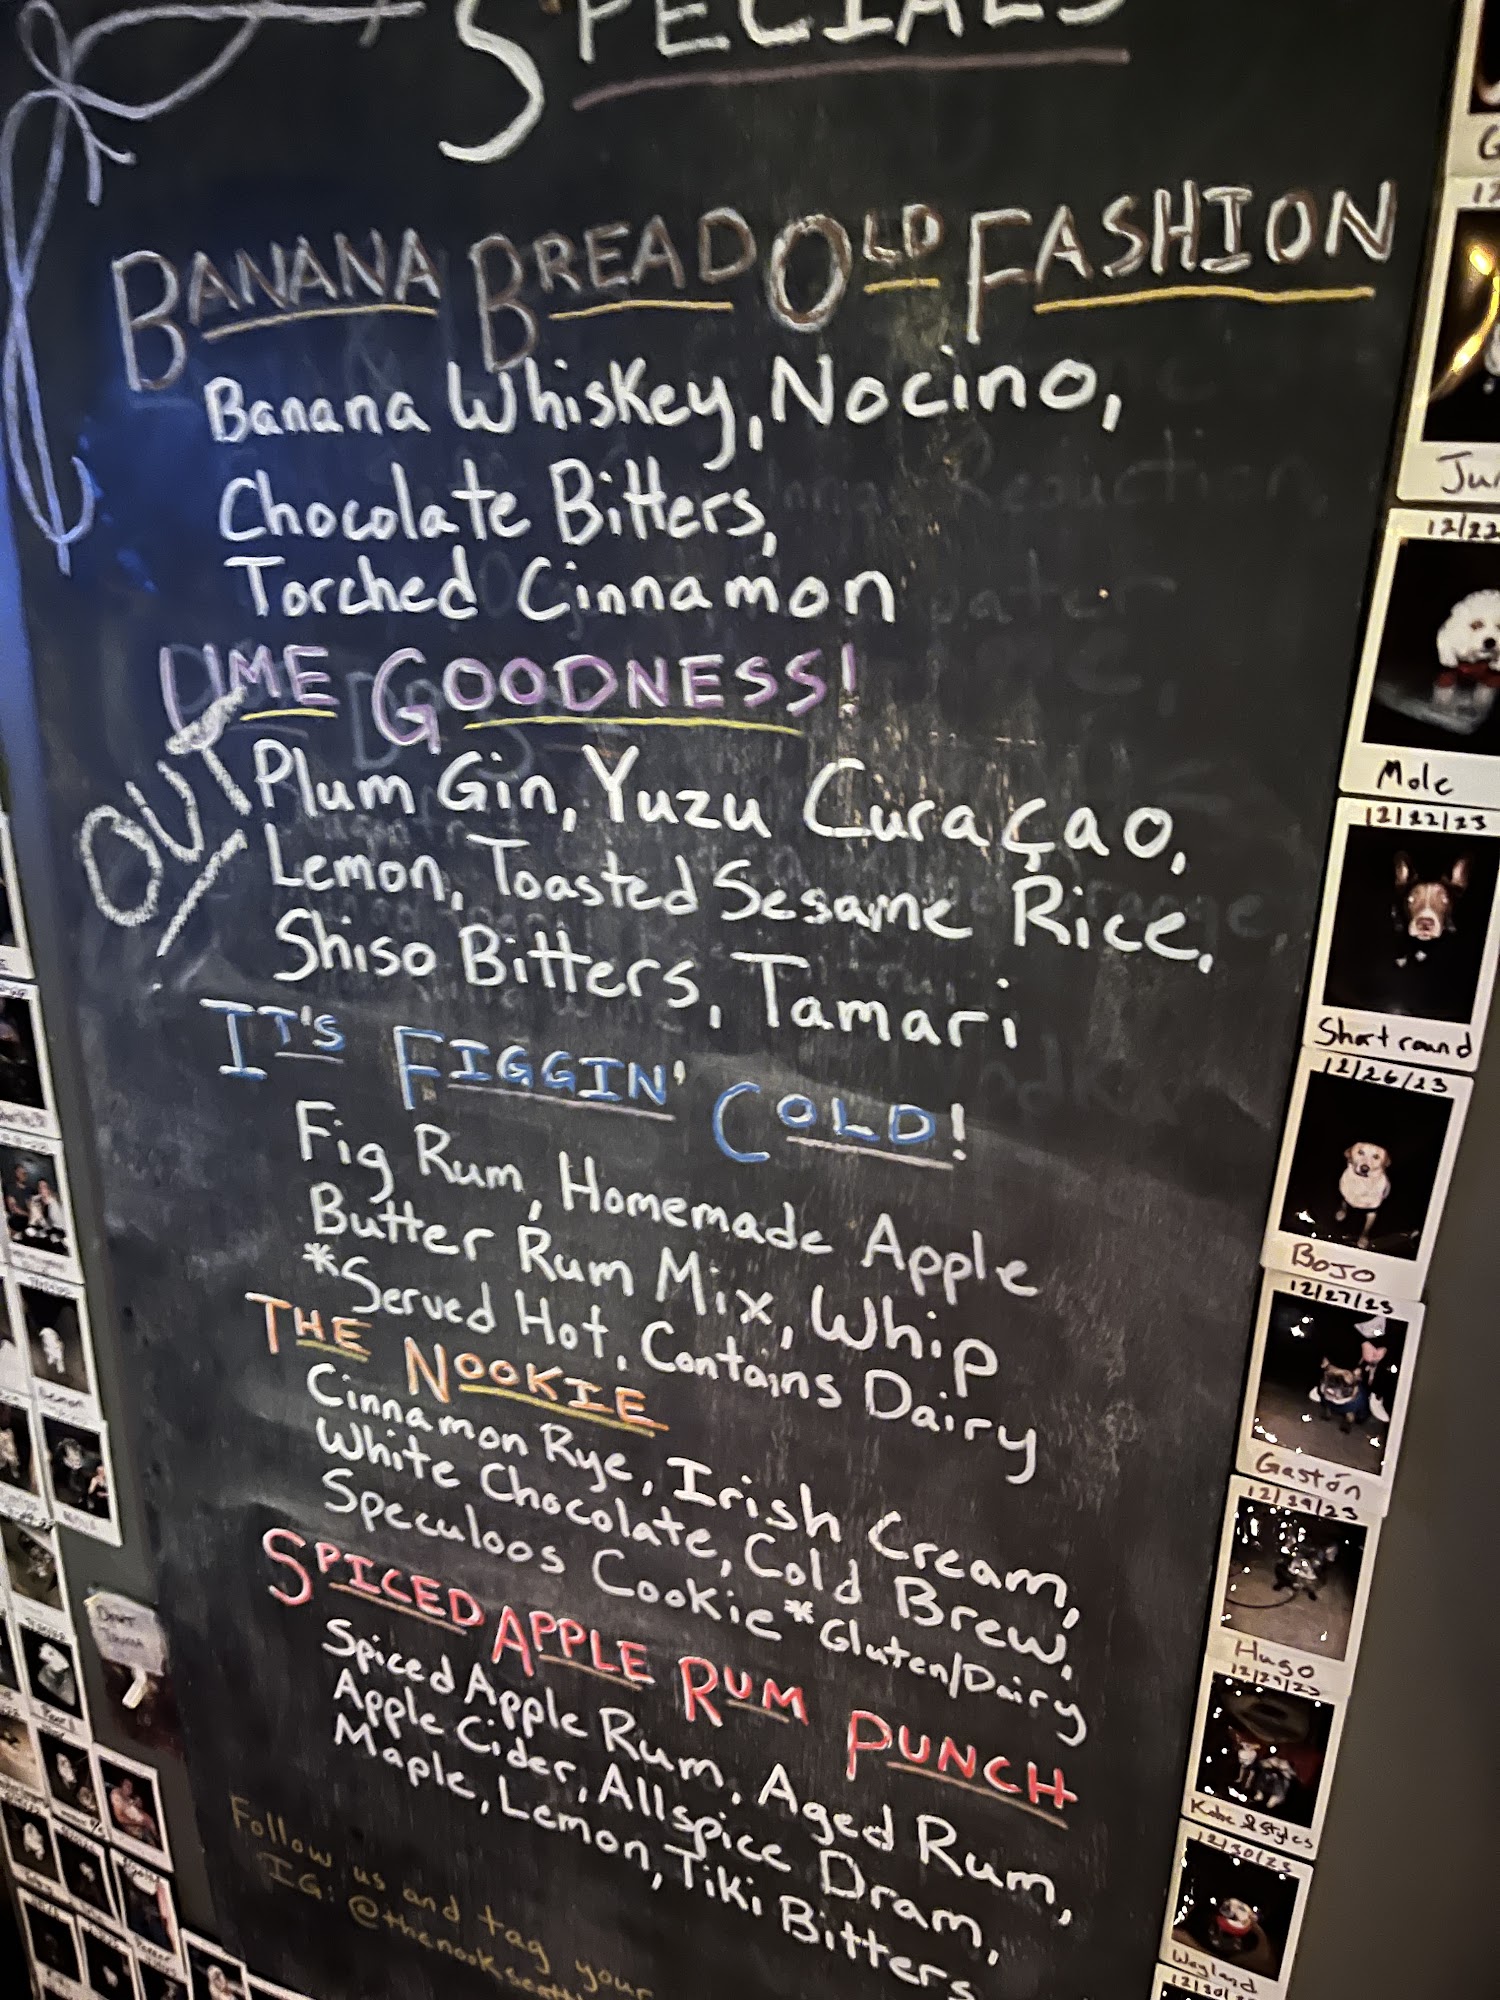 SPECIALS
BANANA BREAD OLD FASHION
Banana Whiskey, Nocino,
Chocolate Bitters,
Torched Cinnamon
UME GOODNESS!
OUT
Plum Gin, Yuzu Curaçao,
Lemon, Toasted Sesame Rice,
Shiso Bitters, Tamari
IT'S FIGGIN' COLD!
Fig Rum, Homemade Apple
Butter Rum Mix, Whip
*Served Hot. Contains Dairy
THE NOOKIE
Cinnamon Rye, Irish Cream,
White Chocolate, Cold Brew,
Speculoos Cookie *Gluten/Dairy
SPICED APPLE RUM PUNCH
Spiced Apple Rum, Aged Rum,
Apple Cider, Allspice Dram,
Maple, Lemon, Tiki Bitters
Follow us and tag your
IG: @thenookseatt
12/22
Mole
12/22/23
Shortround
12/26/23
BOJO
12/27/23
Gastón
12/29/23
Hugo
12/29/23
Kobe & Styles
12/30/23
Wayland
12/30/23